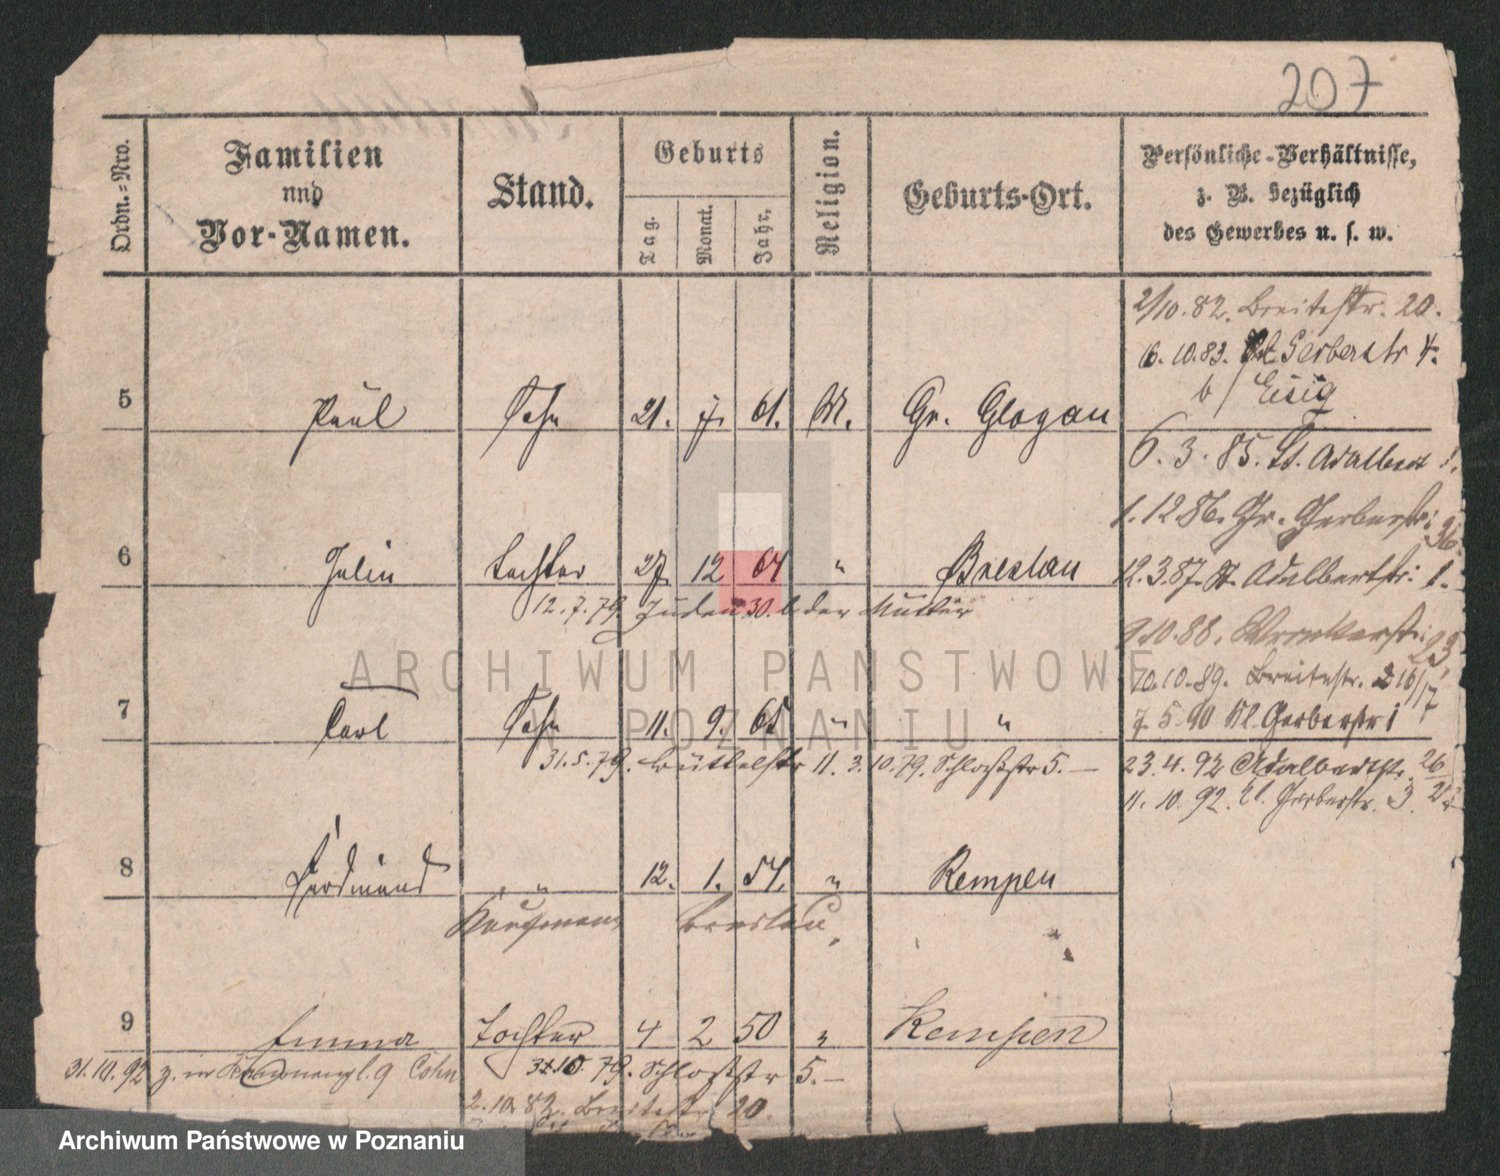 207
Ordn.-Nro.
Familien
und
Vor-Namen.
Stand.
Geburts
Tag.
Monat.
Jahr.
Religion.
Geburts-Ort.
Persönliche-Verhältnisse,
z. B. bezüglich
des Gewerbes u. s. w.
2/10.82. Breitestr. 20.
16.10.83. Gerberstr 4.
b/ Eisig
5 Paul Sohn 21. 7. 61. M. Gr. Glogau
6.3.85. St. Adalbert 1.
1.12 86. Gr. Gerberstr. 36.
6 Julie Tochter 27. 12 64 " Breslau
12.3.87. St. Adalbertstr: 1.
12.7.79. Juden 30. b der Mutter
9.10.88. Wronkerstr. 23,
10.10.89. Breitestr. 16/17
7 Carl Sohn 11. 9. 65 " "
7.5.90 Kl. Gerberstr 1
31.5.79. Büttelstr 11. 3.10.79. Schloßstr 5. —
23.4.92 Adalbertstr. 26/27
11.10.92. Kl. Gerberstr. 3.
8 Ferdinand " 12. 1. 54. " Kempen
Kaufmann Breslau,
9 Emma Tochter 4 2 50 " Kempen
31.10.92 z. m Cohn
3.10.79. Schloßstr 5. —
2.10.82. Breitestr 20.
ARCHIWUM PAŃSTWOWE
W POZNANIU
Archiwum Państwowe w Poznaniu